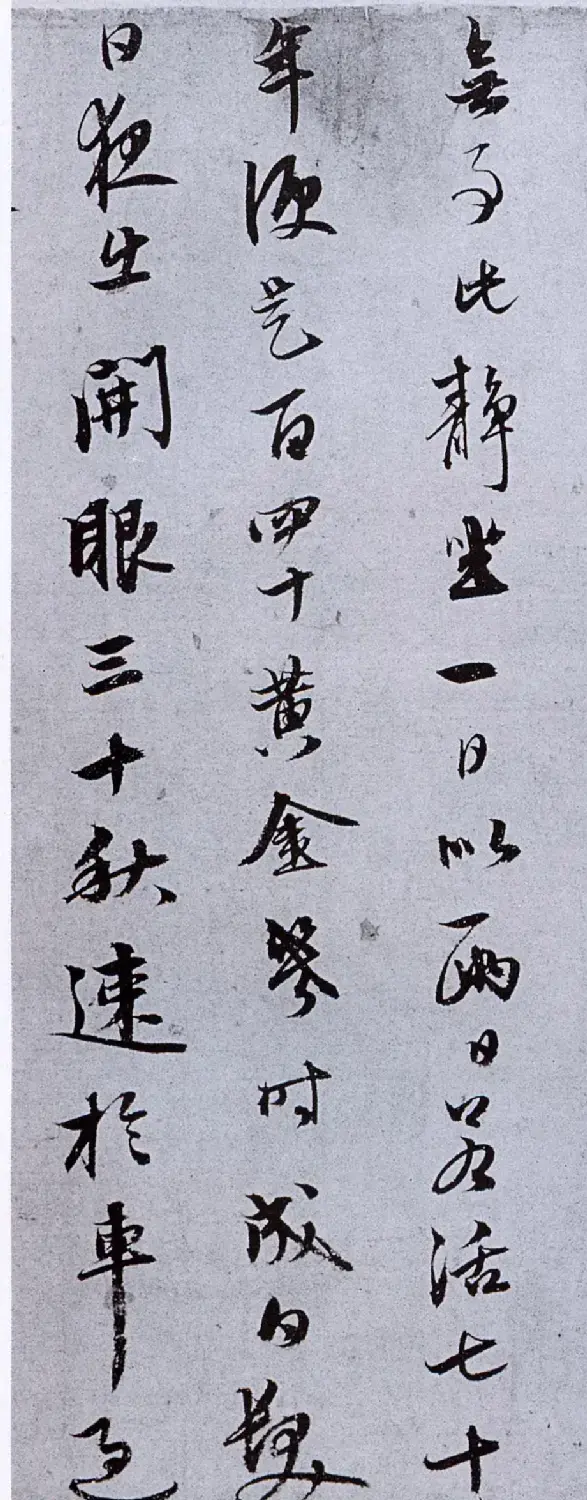 無事此靜坐一日似兩日若活七十
年便是百四十黃金幾時成白髮
日夜出開眼三十秋速於車過